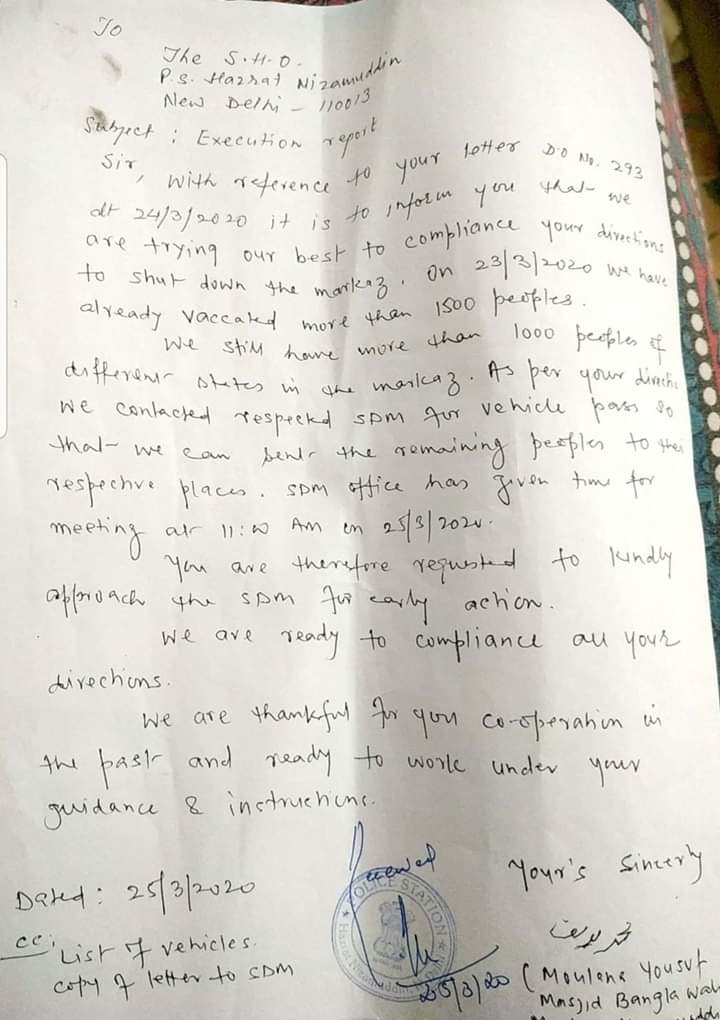 To
The S.H.O.
P.S. Hazrat Nizamuddin
New Delhi - 110013
Subject : Execution report
Sir,
With reference to your letter D.O No. 293
dt 24/3/2020 it is to inform you that we
are trying our best to compliance your directions
to shut down the markaz. On 23/3/2020 we have
already vaccated more than 1500 peoples.
We still have more than 1000 peoples of
different states in the markaz. As per your directi
we contacted respected SDM for vehicle pass so
that we can sent the remaining peoples to thei
respective places. SDM office has given time for
meeting at 11:00 AM on 25/3/2020.
You are therefore requested to kindly
approach the SDM for early action.
We are ready to compliance all your
directions.
We are thankful for you co-operation in
the past and ready to work under your
guidance & instructions.
Received
Your's Sincerly
Dated : 25/3/2020
POLICE STATION
Hazrat Nizamuddin
محمد یوسف
cc: List of vehicles.
copy of letter to SDM
25/3/20
(Moulana Yousuf
Masjid Bangla wal